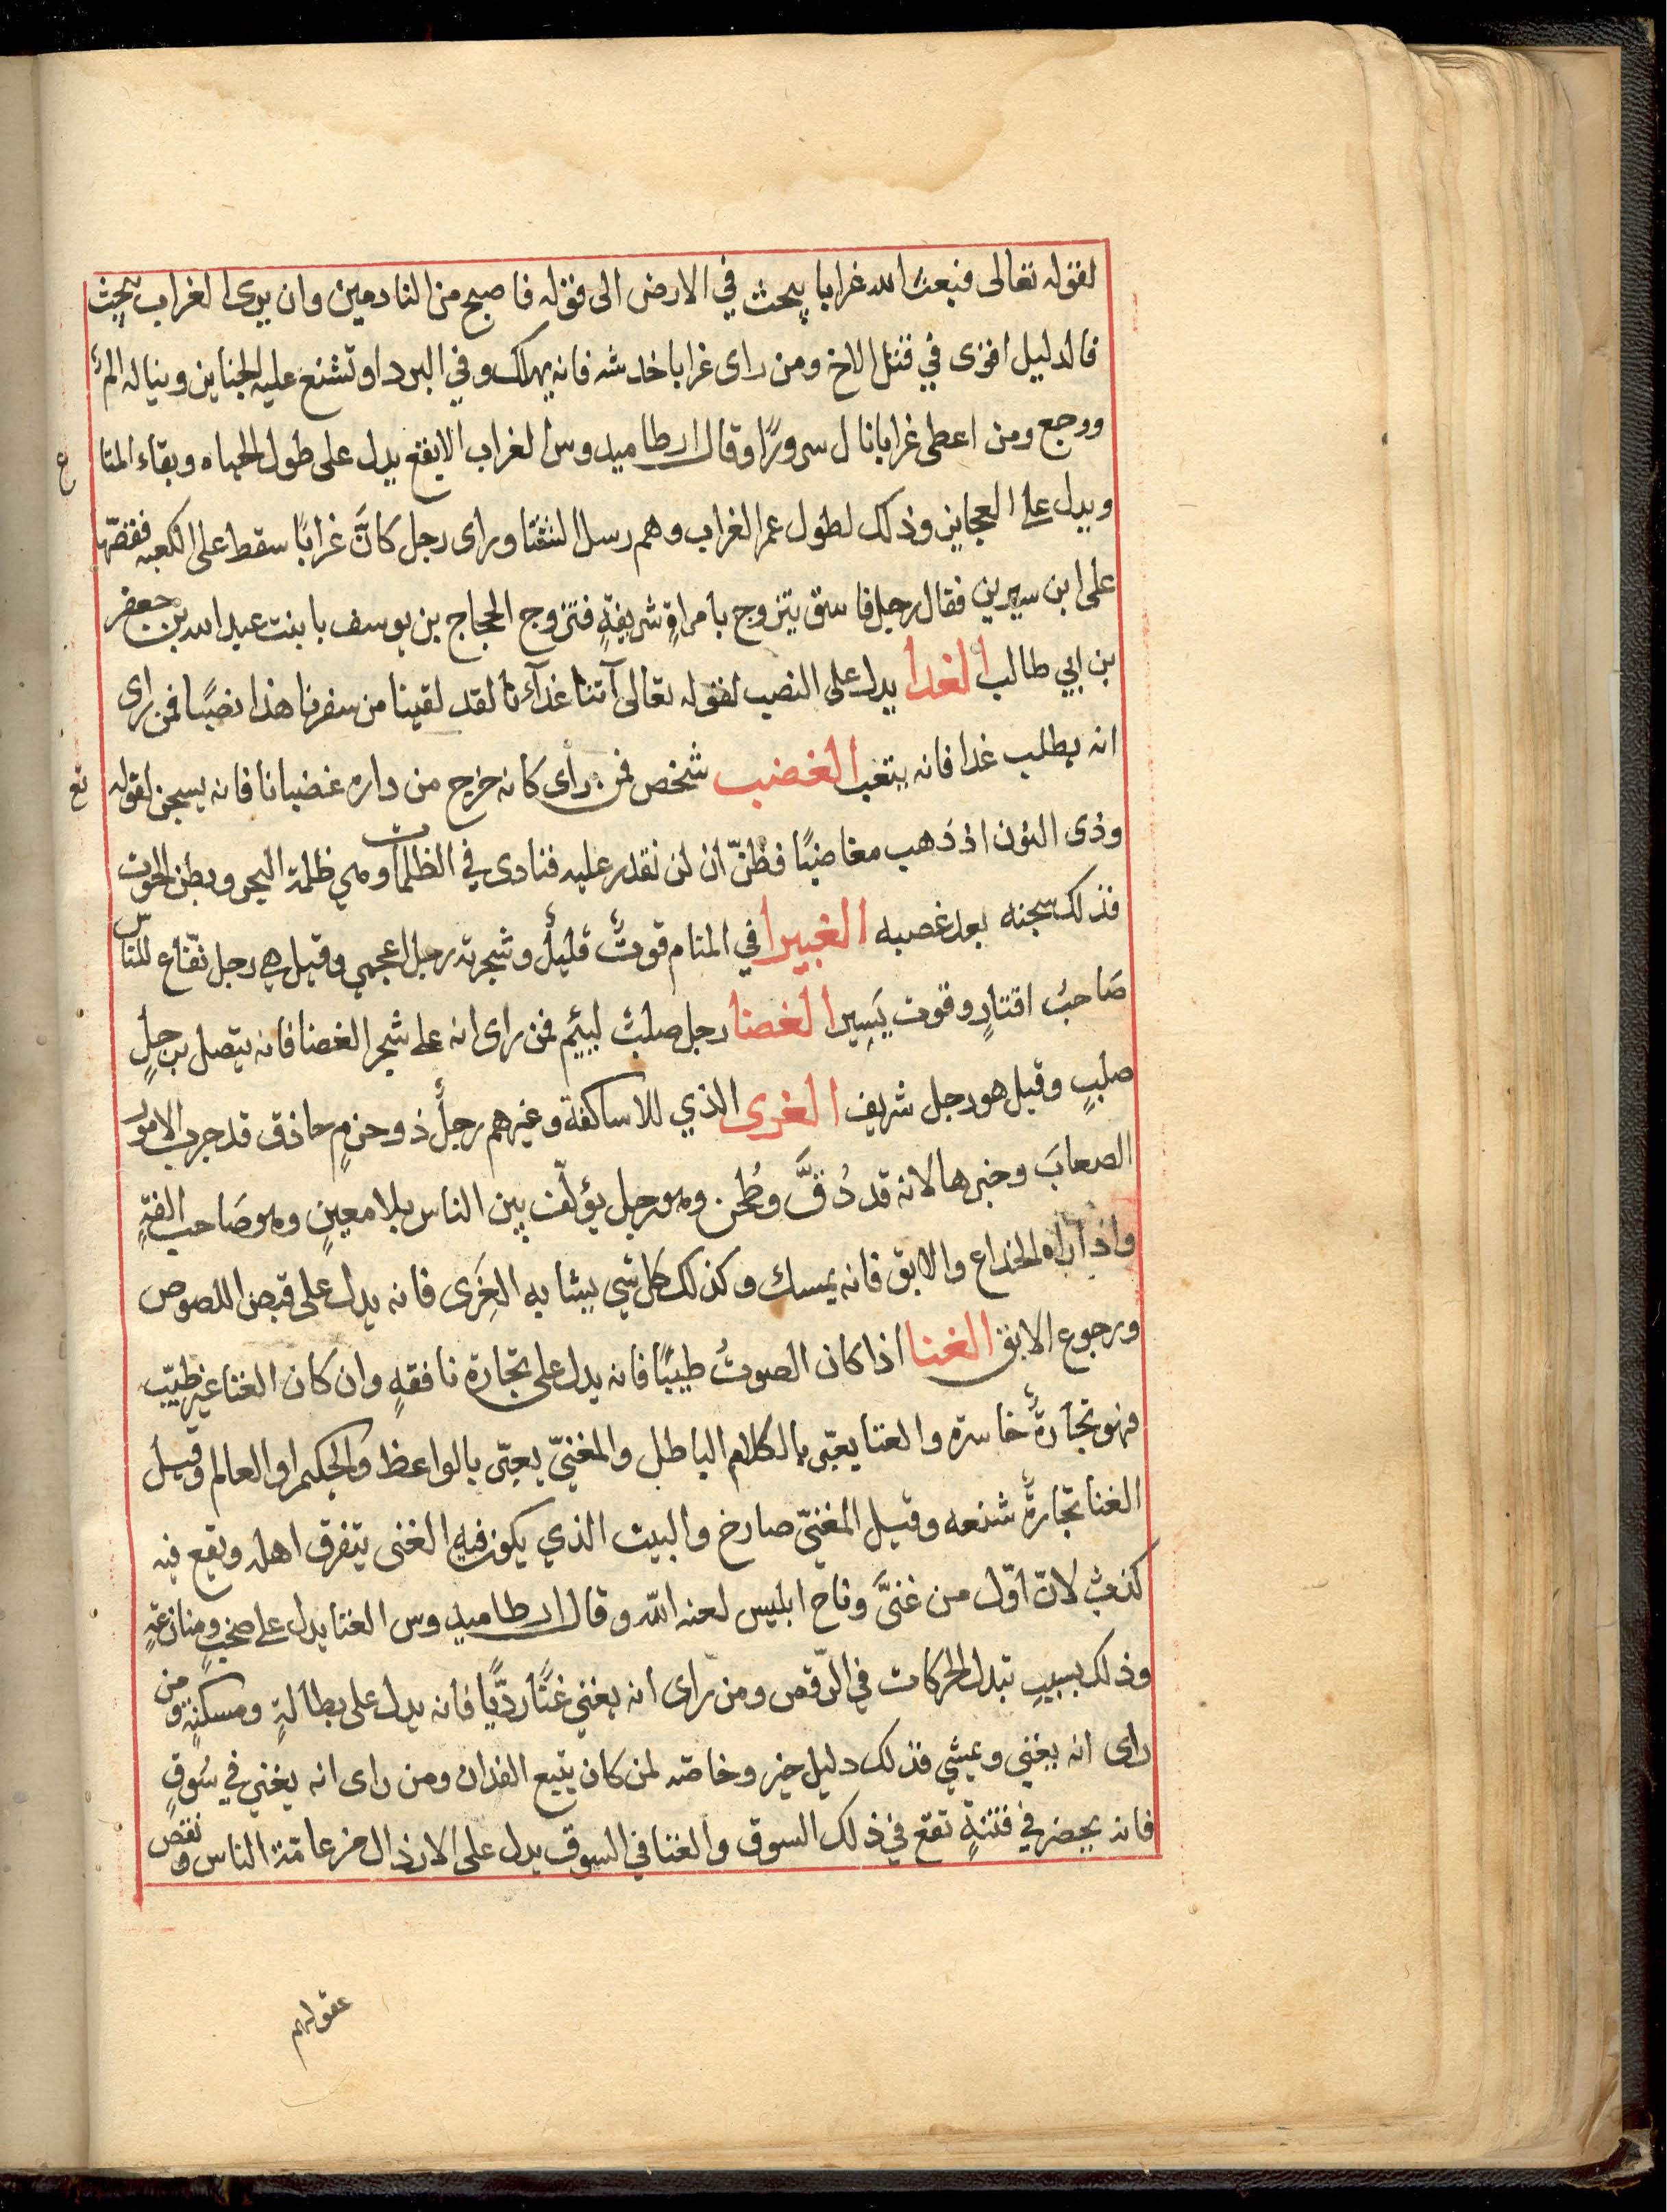 لقوله تعالى فبعث الله غرابا يبحث في الارض الى قوله فاصبح من النادمين وان يرى الغراب يبحث
فالدليل اقوى في قتل الاخ ومن راى غرابا خدشه فانه يهلك وفي البرد او تشنع عليه الجناين ويناله الم
ووجع ومن اعطى غرابا نال سرورًا وقال ارطاميدوس الغراب الابقع يدل على طول الحياه وبقاء المتاع
ويدل على العجايز وذلك لطول عمر الغراب وهم رسل الشتا وراى رجل كانَّ غرابًا سقط على الكعبه فقصّها
على ابن سيرين فقال رجل فاسق يتزوج بامراةٍ شريفةٍ فتزوج الحجاج بن يوسف بابنت عبد الله بن جعفر
بن ابي طالب الغدا يدل على النصب لقوله تعالى آتنا غدآءنا لقد لقينا من سفرنا هذا نصبًا فمن راى
انه يطلب غدا فانه يتعب الغضب شخص فمن راى كانه خرج من داره غضبانا فانه يسجن لقوله تع
وذى النون اذ ذهب مغاضبًا فظنّ ان لن نقدر عليه فنادى في الظلمات وهي ظلمة البحر وبطن الحوت
فذلك سجنه بعد غضبه الغبيرا في المنام قوتٌ قليلٌ وشجرته رجل اعجمي وقيل هي رجل نفّاع للناس
صَاحبُ اقتارٍ وقوت يَسِير الغضا رجل صلبٌ لييم فمن راى انه على شجر الغضا فانه يتصل برجلٍ
صلبٍ وقيل هو رجل شريف الغرى الذي للاساكفة وغيرهم رجلٌ ذو حزمٍ حاذق قد جرب الامور
الصعابَ وخبرها لانه قد دُقَّ وطُحن وهو رجل يؤلّف بين الناس بلا معينٍ وهو صَاحب الفةٍ
واذا راه الخداع والابق فانه يمسك وكذلك كل شي يشابه الغِرَى فانه يدل على قبض اللصوص
ورجوع الابق الغنا اذا كان الصوتُ طيبًا فانه يدل على تجارة نافقهٍ وان كان الغنا غير طيّب
فهو تجارةٌ خاسرة والغنا يعبّر بالكلام الباطل والمغنيّ يعبّر بالواعظ والحكيم او العالم وقيل
الغنا تجارةٌ شنعه وقيل المغنيّ صارخ والبيت الذي يكون فيه الغنى يتفرق اهله ويقع فيه
كذبٌ لانّ اوّل من غنىَّ وناح ابليس لعنه الله وقال ارطاميدوس الغنا يدل على صخبٍ ومنازعةٍ
وذلك بسببِ تبدل الحركات في الرّقص ومن راى انه يغني غنًا رديًّا فانه يدل على بطالةٍ ومسكنةٍ ومن
راى انه يغني ويمشي فذلك دليل خير وخاصّه لمن كان يتبع الفدان ومن راى انه يغني في سُوقٍ
فانه يحضر في فتنةٍ تقع في ذلك السوق والغنا في السوق يدل على الارذال من عامّة الناس ونقص
عقولهم